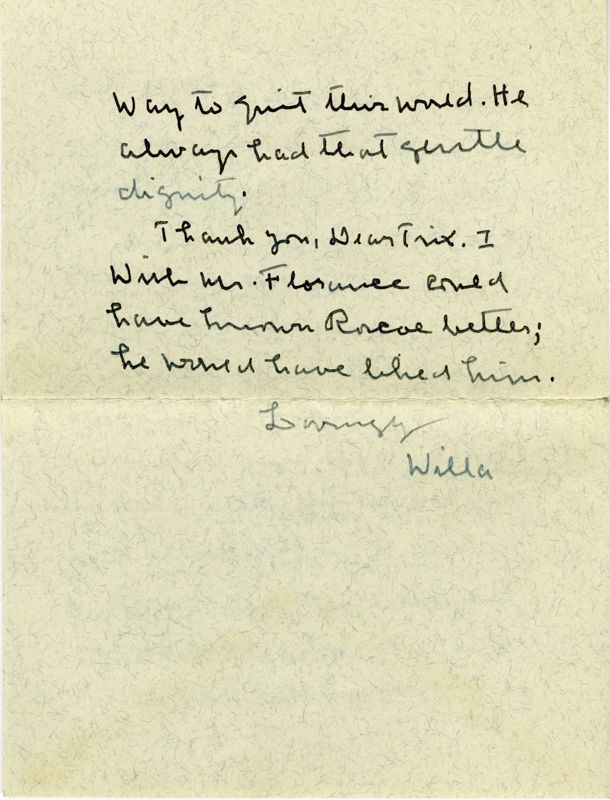 Way to quit this world. He
always had that gentle
dignity.
Thank you, Dear Trix. I
Wish Mr. Florance could
have known Roscoe better;
he would have liked him.
Lovingly
Willa